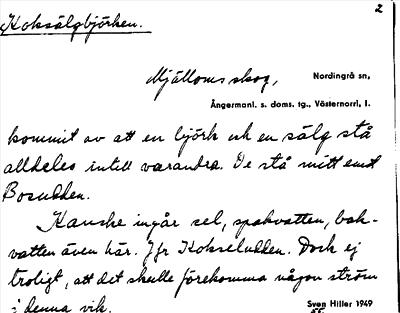 2
Koksälgbjörken.
Mjälloms skog, Nordingrå sn,
Ångermanl. s. doms. tg., Västernorrl, l.
kommit av att en björk och en sälg stå
alldeles intill varandra. De stå mitt emot
Bosudden.
Kanske ingår sel, spakvatten, bak-
vatten även här. Jfr Kokseludden. Dock ej
troligt, att det skulle förekomma någon ström
i denna vik.
Sven Hiller 1949